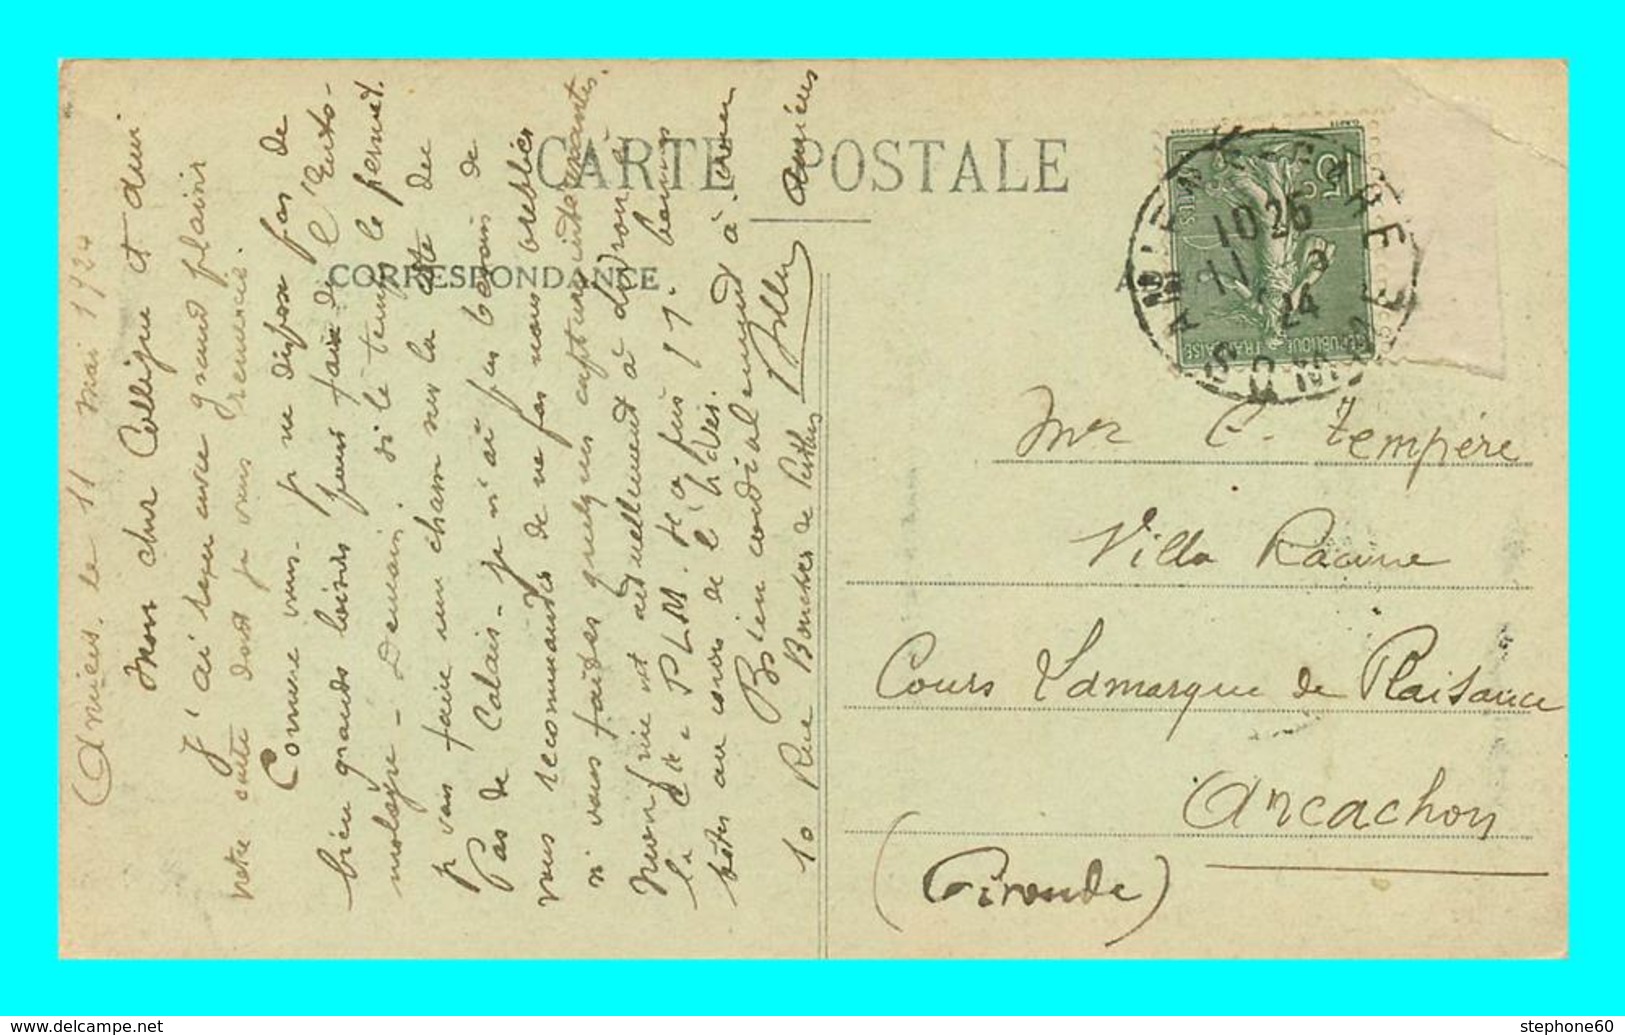 CARTE POSTALE
CORRESPONDANCE
Amiens le 11 mai 1924
Mon cher Collègue et ami
J'ai reçu avec grand plaisir
votre carte dont je vous remercie.
Comme vous je ne dispose pas de
bien grands loisirs pour faire de l'Ento-
mologie - Demain, si le temps le permet.
je vais faire une chasse sur la côte du
Pas de Calais - je n'ai pas besoin de
vous recommander de ne pas nous oublier
si vous faites quelques captures intéressantes.
Mon fils est actuellement à
la Cie PLM. Il a pris
bêtes au cours de l'hiver.
Bien cordialement à vous
10 Rue Boucher de Perthes Amiens
AMIENS GARE
SOMME
10 25
11 5
24
15c
POSTES
REPUBLIQUE FRANÇAISE
Mr C. Tempère
Villa Racine
Cours Lamarque de Plaisance
Arcachon
(Gironde)
www.delcampe.net
stephone60